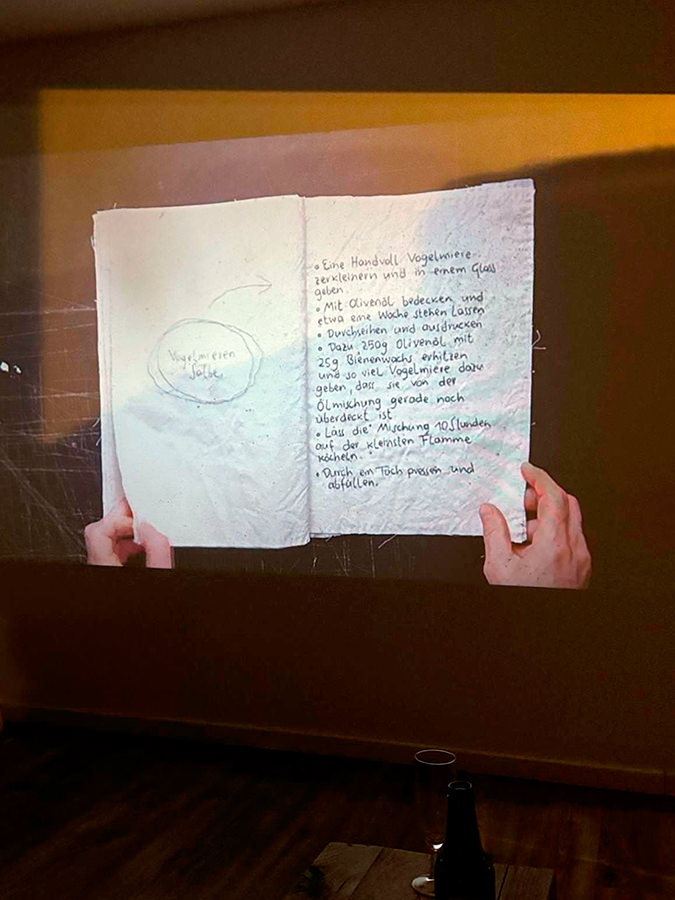 Vogelmieren
Salbe
• Eine Handvoll Vogelmiere
zerkleinern und in einem Glas
geben.
• Mit Olivenöl bedecken und
etwa eine Woche stehen lassen
• Durchseihen und ausdrücken
• Dazu 250g Olivenöl mit
25g Bienenwachs erhitzen
und so viel Vogelmiere dazu
geben, dass sie von der
Ölmischung gerade noch
überdeckt ist
• Lass die Mischung 10 Stunden
auf der kleinsten Flamme
köcheln.
• Durch ein Tuch pressen und
abfüllen.